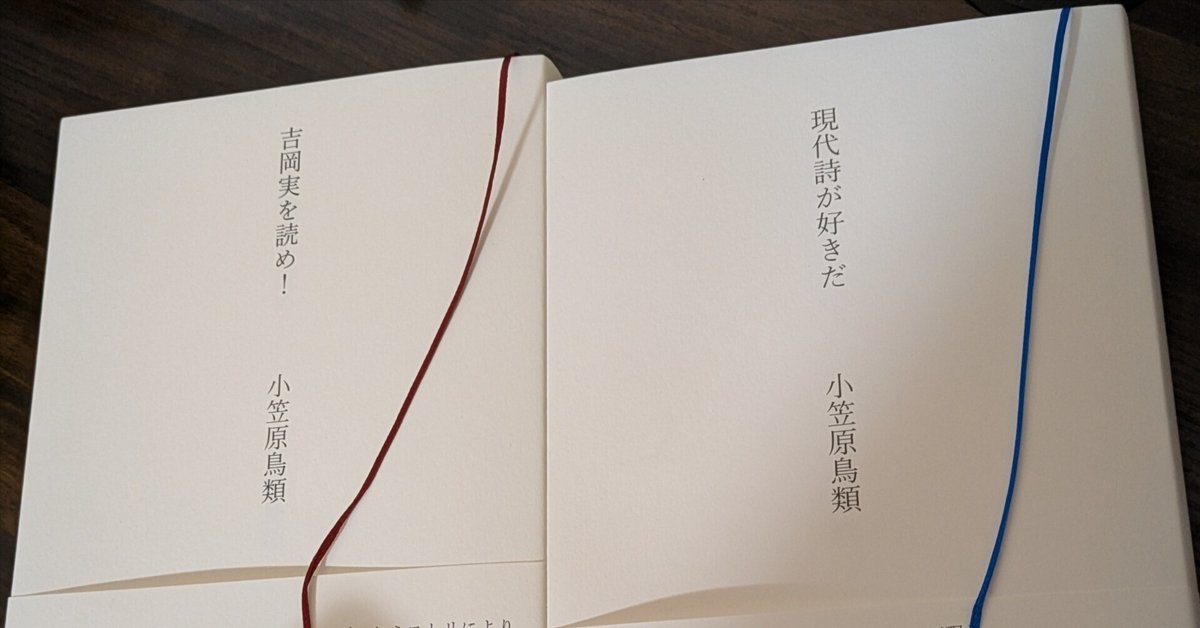 吉岡実を読め！
小笠原鳥類
現代詩が好きだ
小笠原鳥類